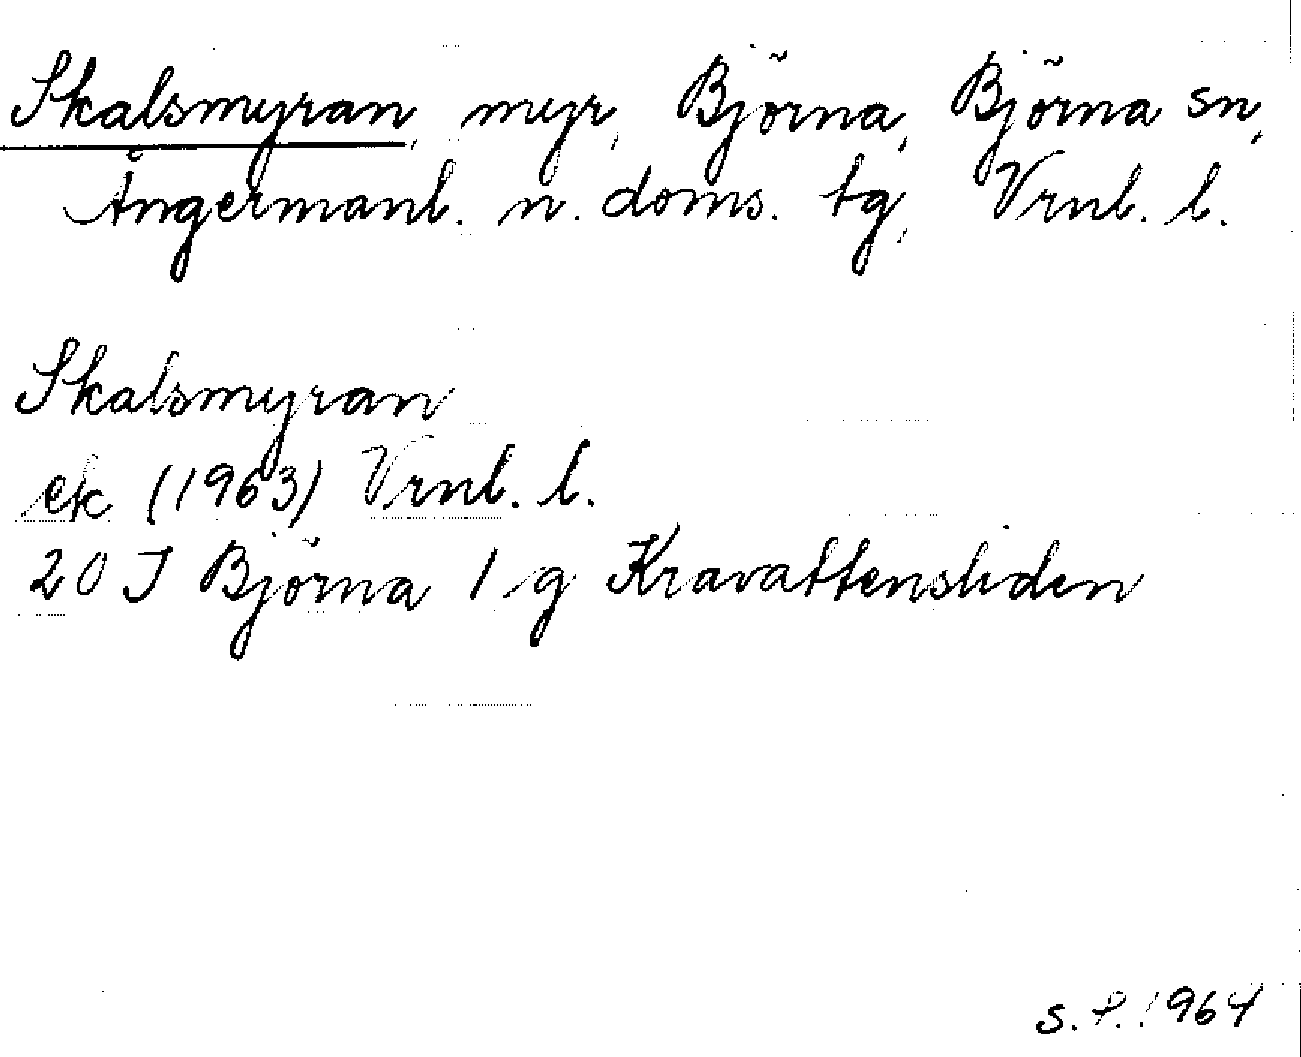 Skalsmyran, myr, Björna, Björna sn,
Ångermanl. n. doms. tg, Vrnl. l.
Skalsmyran
ek (1963) Vrnl. l.
20 J Björna 1 g Kravattensliden
s. f. 1964